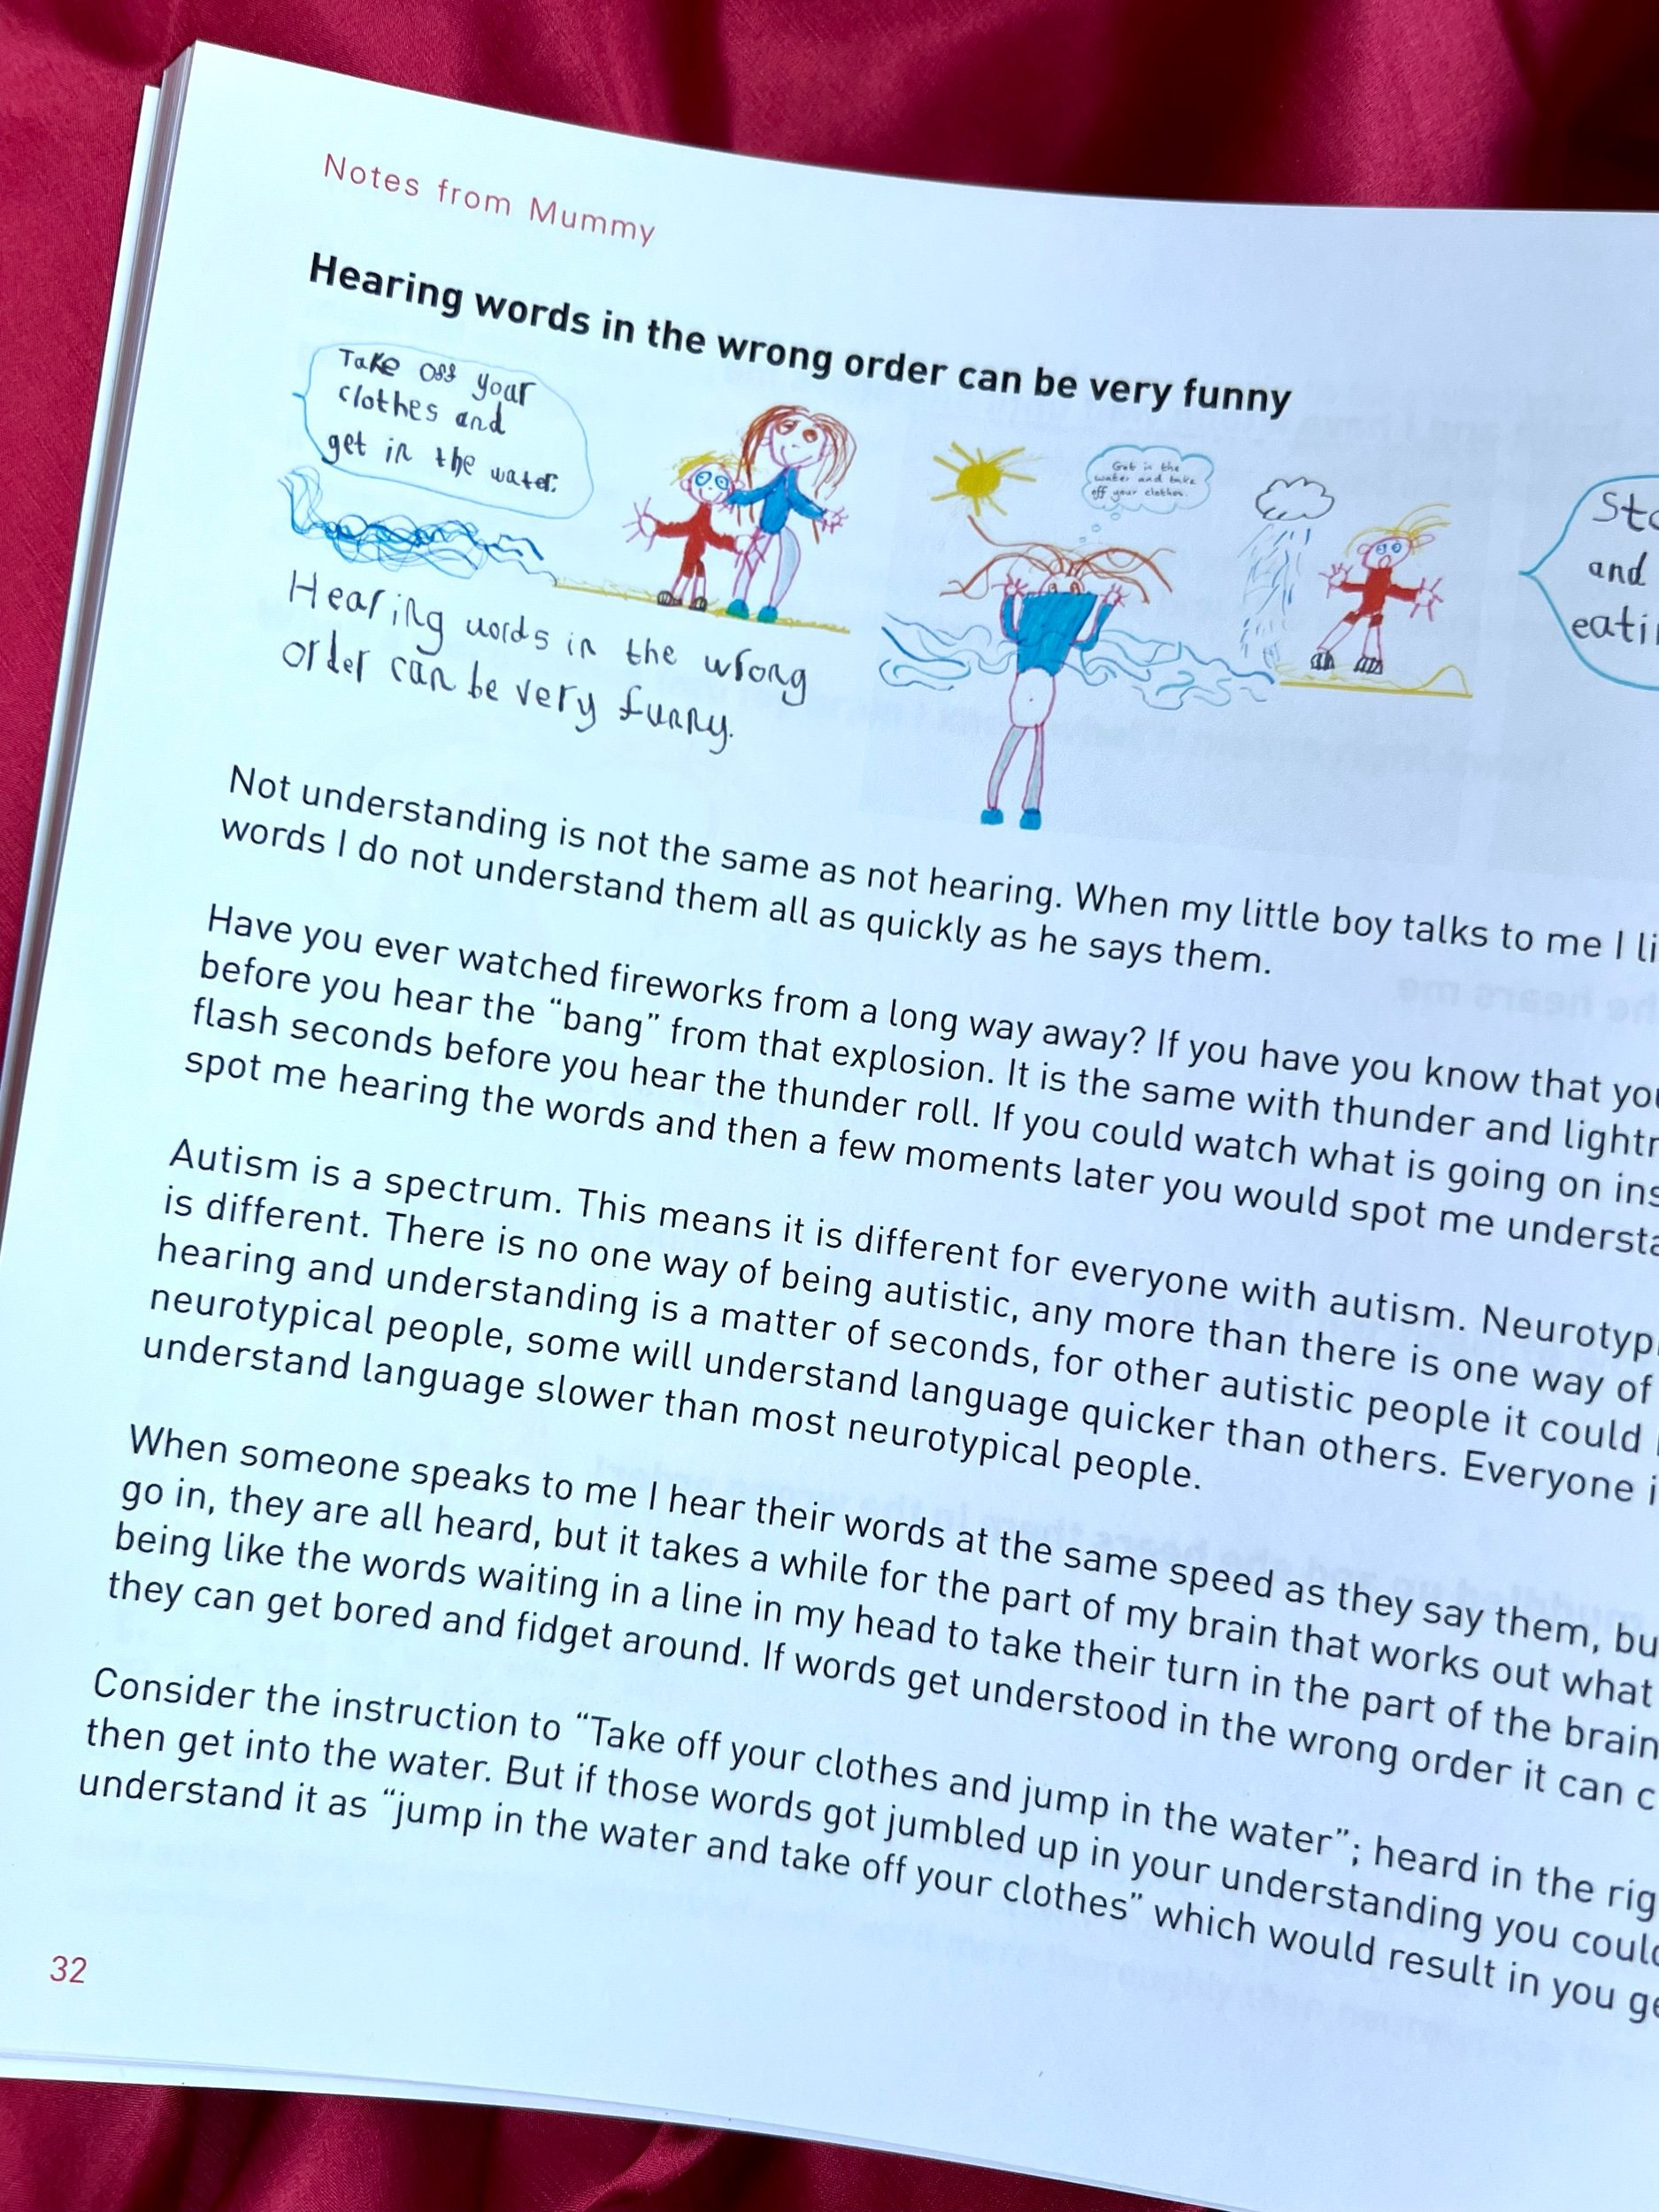 Notes from Mummy
Hearing words in the wrong order can be very funny
Take off your
clothes and
get in the water.
Get in the
water and take
off your clothes.
and
Hearing words in the wrong
order can be very funny.
Not understanding is not the same as not hearing. When my little boy talks to me I
words I do not understand them all as quickly as he says them.
Have you ever watched fireworks from a long way away? If you have you know that
before you hear the “bang” from that explosion. It is the same with thunder and
flash seconds before you hear the thunder roll. If you could watch what is going on
spot me hearing the words and then a few moments later you would spot me
Autism is a spectrum. This means it is different for everyone with autism.
is different. There is no one way of being autistic, any more than there is one way of
hearing and understanding is a matter of seconds, for other autistic people it could
neurotypical people, some will understand language quicker than others. Everyone
understand language slower than most neurotypical people.
When someone speaks to me I hear their words at the same speed as they say them,
go in, they are all heard, but it takes a while for the part of my brain that works out what
being like the words waiting in a line in my head to take their turn in the part of the brain
they can get bored and fidget around. If words get understood in the wrong order it can
Consider the instruction to “Take off your clothes and jump in the water”; heard in the
then get into the water. But if those words got jumbled up in your understanding you
understand it as “jump in the water and take off your clothes” which would result in you
32